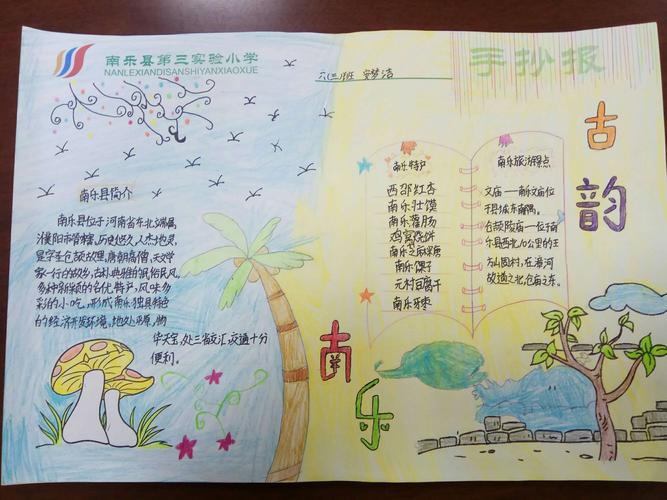 南乐县第三实验小学
NANLEXIANDISANSHIYANXIAOXUE
手抄报
六(三)班 安梦洁
古韵
南乐
南乐县简介
南乐县位于河南省东北端属
濮阳市管辖,历史悠久,人杰地灵,
是字圣仓颉故里,唐朝高僧,天文学
家一行的故乡,古朴典雅的民俗民风,
多种新颖的名优特产,风味多
彩的小吃,形成南乐独具特色
的经济开发环境。地处平原,物
华天宝,处三省交汇,交通十分
便利。
南乐特产
西邵红杏
南乐壮馍
南乐灌肠
鸡窝烧饼
南乐芝麻糖
南乐馃子
元村豆腐干
南乐牙枣
南乐旅游景点
文庙——南乐文庙位
于县城东南隅。
仓颉陵庙——位于南
乐县西北10公里的王
方山固村,在濮河
故道之北,仓庙之东。